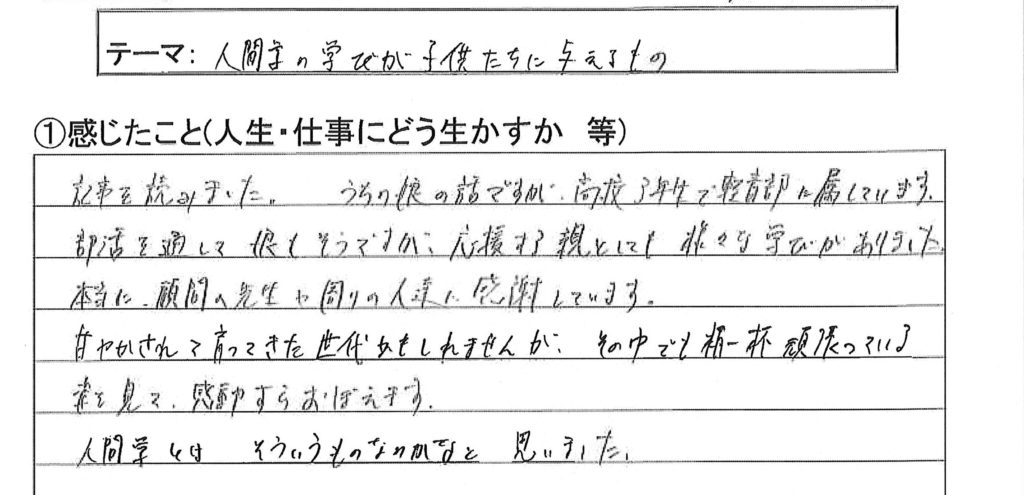 テーマ: 人間学の学びが子供たちに与えるもの
①感じたこと(人生・仕事にどう生かすか 等)
記事を読みました。 うちの娘の話ですが、高校3年生で軽音部に属しています。
部活を通して娘もそうですが、応援する親としても様々な学びがありました。
本当に、顧問の先生や周りの人達に感謝しています。
甘やかされて育ってきた世代かもしれませんが、その中でも精一杯頑張っている
姿を見て、感動すらおぼえます。
人間学とは そういうものなのかなと 思いました。